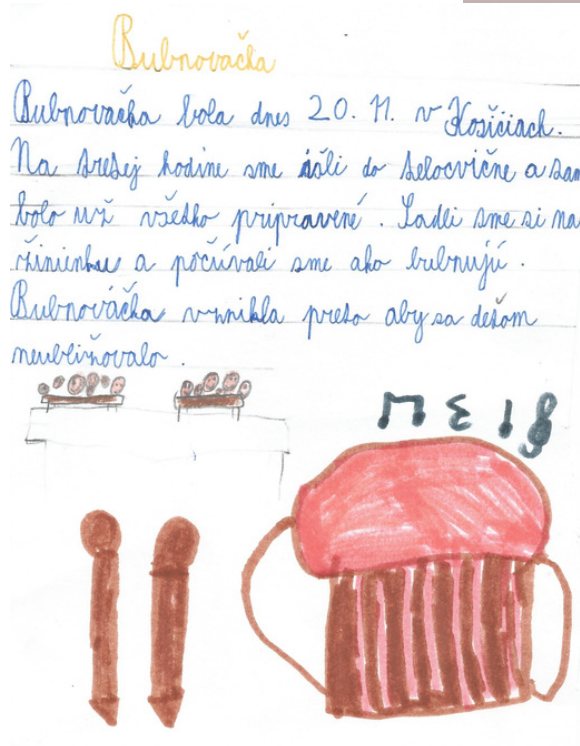 Bubnovačka
Bubnovačka bola dnes 20. 11. v Kosičiach.
Na tretej hodine sme išli do telocvične a tam
bolo už všetko pripravené. Sadli sme si na
žinienku a počúvali sme ako bubnujú.
Bubnováčka vznikla preto aby sa deťom
neubližovalo.